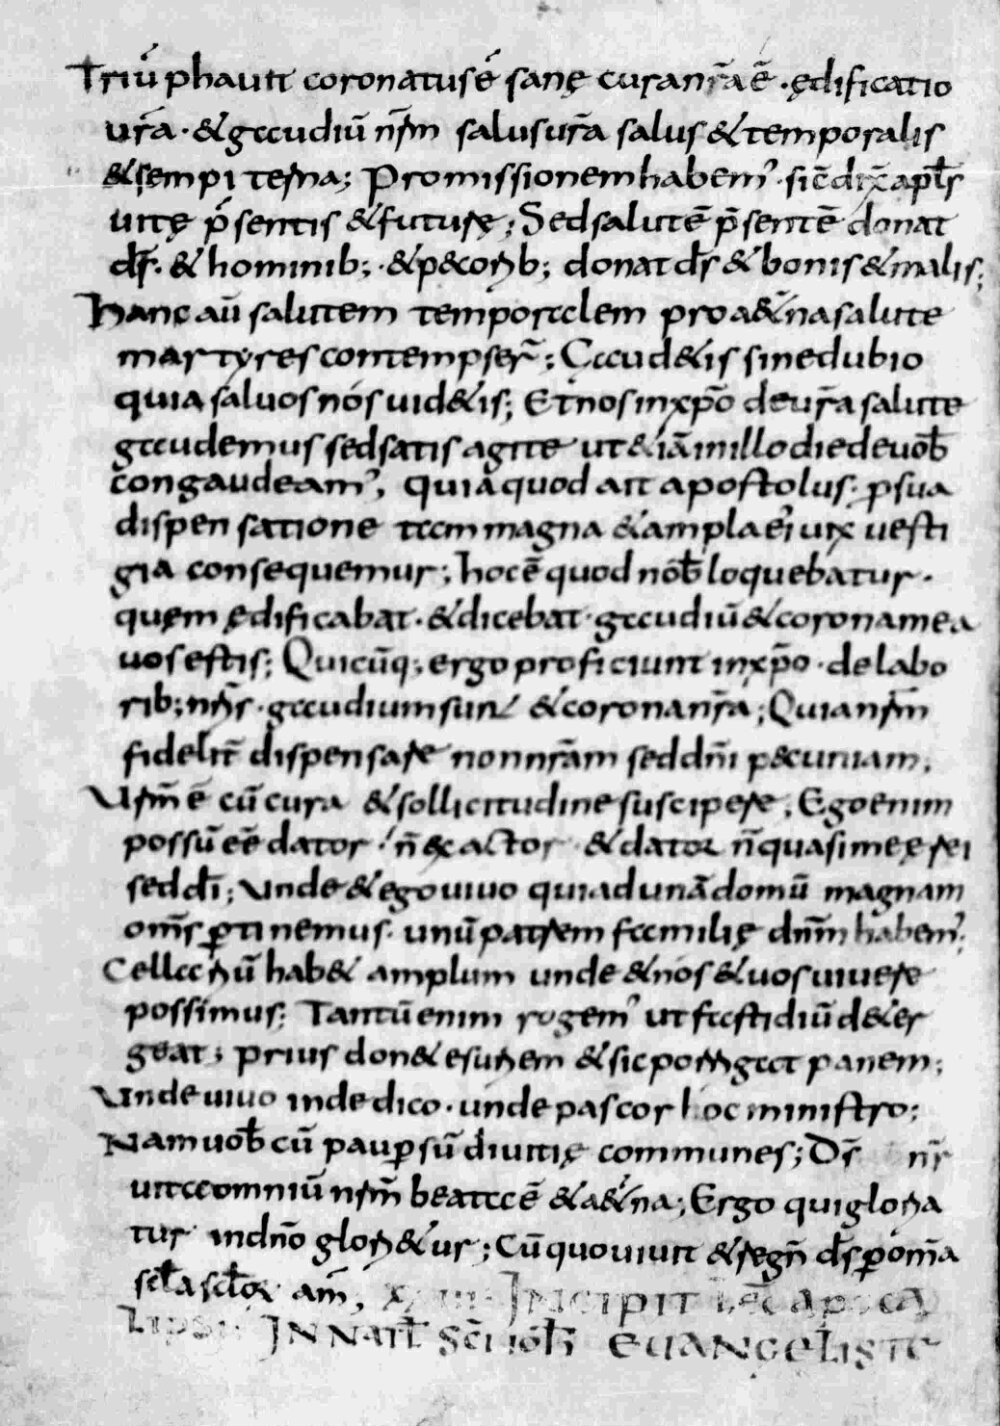 Triū phauit coronatus ḗ sanę cura nr̄a ē · ędificatio
ur̄a · & gaudiū nr̄m salus ur̄a salus & temporalis
& sempiterna; Promissionem habem᾽ · sic̄ dix̄ apl̄s
uitę p̄sentis & futurę; Sed salutē p̄sentē donat
dr̄s · & hominib; · & pecorib; donat d̄s & bonis & malis;
Hanc aū salutem temporalem pro a&́na salute
martyres contempser̄; Gaud&is sine dubio
quia saluos nos uid&is; Et nos in xp̄o de ur̄a salute
gaudemus sed satis agite ut & iā in illo die de uob̄
congaudeam᾽, quia quod ait apostolus · ꝑ sua
dispensatione tam magna & ampla ei᾽ uix uesti
gia consequemur; hoc ē quod nob̄ loquebatur ·
quem ędificabat · & dicebat · gaudiū & corona mea
uos estis; Quicūq; ergo proficiunt in xp̄o · de labo
rib; nr̄is · gaudium sunt & corona nr̄a; Quia nr̄m
fidelit̄ dispensare non nr̄am sed dn̄i pecuniam.
Ur̄m ē cū cura & sollicitudine suscipere, Ego enim
possū eē dator n̄ exactor & dator n̄ quasi meę rei
sed dī; Unde & ego uiuo quia ad unā domū magnam
om̄s ꝑtinemus · unū patrem familię dn̄m habem᾽;
Cellariū hab& amplum unde & nos & uos uiuere
possimus; Tantū enim rogem᾽ ut fastidiū d&er
geat; prius don& esuriem & sic porrigat panem;
Unde uiuo inde dico · unde pascor hoc ministro;
Nam uob̄ cū pauꝑ sū diuitię communes; Ds̄ nr̄
uita omniū nr̄m beata ē & a&́na; Ergo qui gloria
tur in dn̄o glori&ur; Cū quo uiuit & regn̄ d̄s ꝑ om̄a
scl̄a scl̄oꝝ am̄, INCIPIT lec̄ apoca
lipsis IN Natl̄ Sc̄i ioh̄ EUANGELISTE